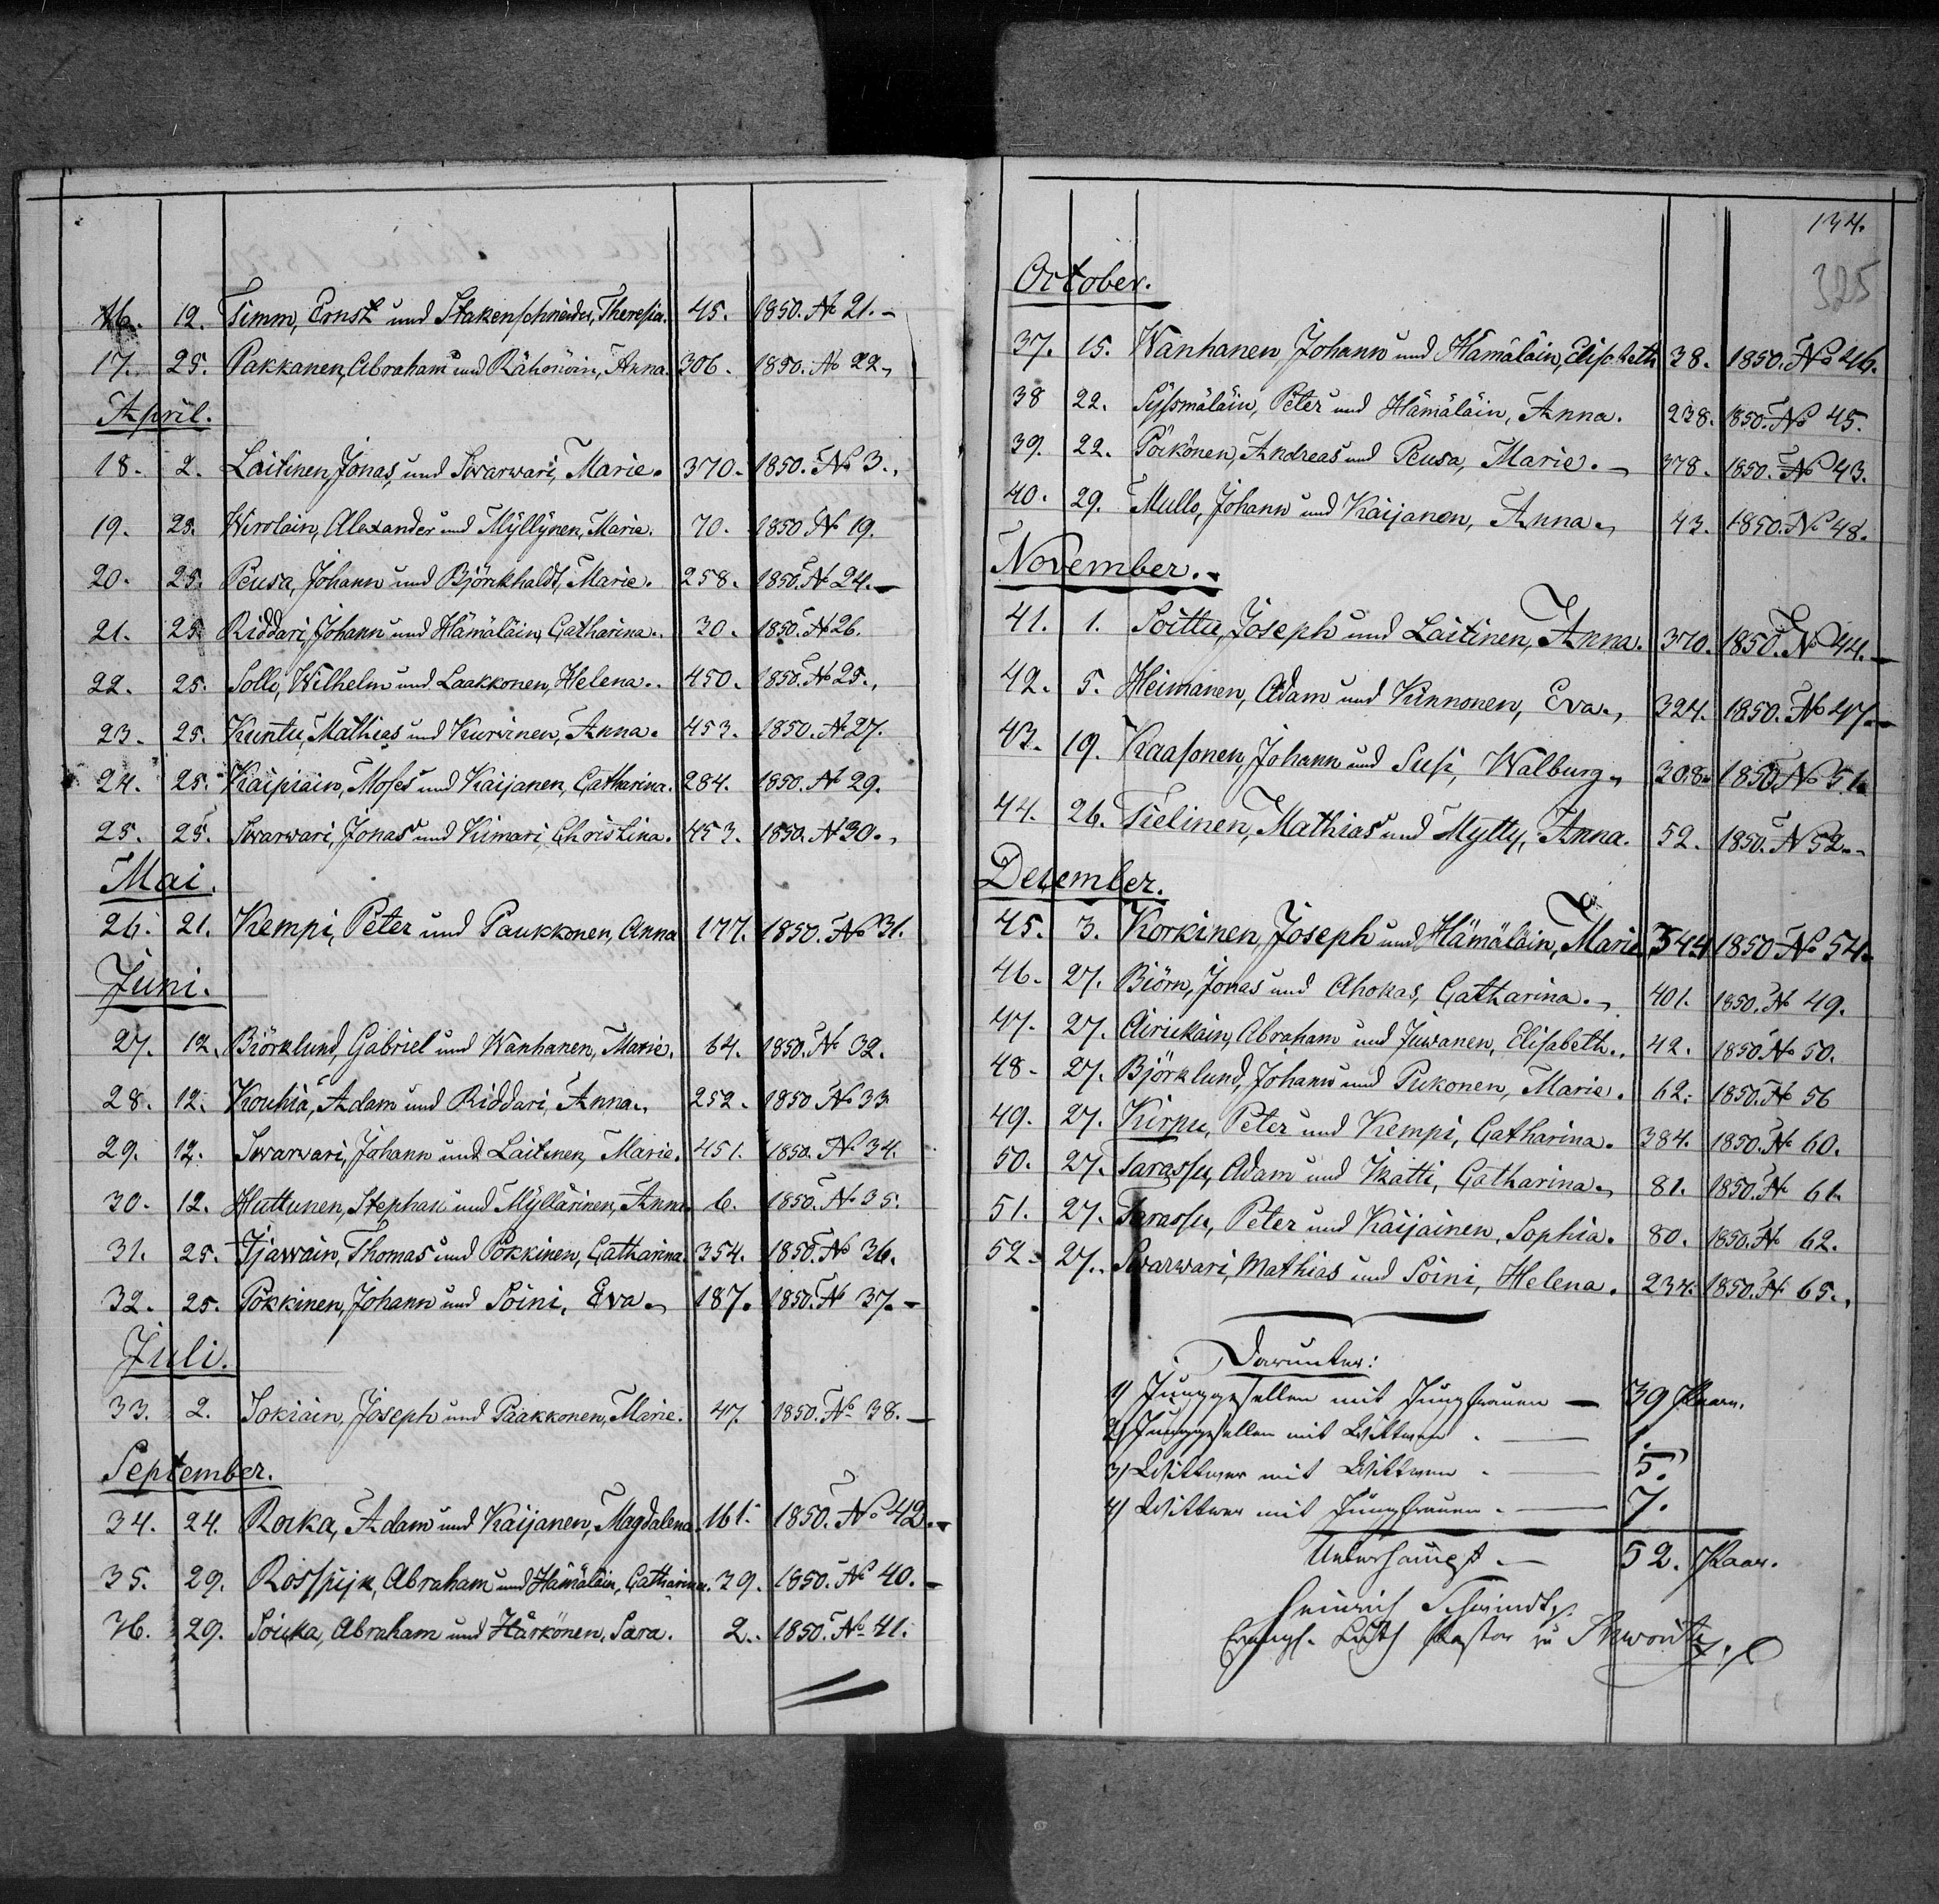 16. 12. Timm, Ernst und Stakenschneider, Theresia. 45. 1850. № 21.
17. 25. Pakkanen, Abraham und Rähönöin, Anna. 306. 1850. № 22.
April.
18. 2. Laitinen, Jonas, und Swarwari, Marie. 370. 1850. № 3.
19. 25. Wirolain, Alexander und Mÿllÿnen, Maria. 70. 1850 № 19.
20. 25. Peusa, Johann und Björckhaldt, Marie. 258. 1850. № 24.
21. 25. Riddari, Johann und Hämäläin, Catharina. 30. 1850. № 26.
22. 25. Sollo, Wilhelm und Laakkonen, Helena. 450. 1850. № 25.
23. 25. Kuntu, Mathias und Kurvinen, Anna. 453. 1850. № 27.
24. 25. Kaipiain, Moses und Kaijanen, Catharina. 284. 1850. № 29.
25. 25. Swarwari, Jonas und Kiimari, Christina. 453. 1850. № 30.
Mai.
26. 21. Kempi, Peter und Paukkonen, Anna 177. 1850. № 31.
Juni.
27. 12. Biörklund, Gabriel und Wanhanen, Marie. 64. 1850. № 32.
28. 12. Kouhia, Adam und Riddari, Anna. 252. 1850 № 33
29. 12. Swarvari, Johann und Laitinen, Marie. 451. 1850. № 34.
30. 12. Hattunen, Stephan und Mÿllärinen, Anna. 6. 1850. № 35.
31. 25. Tjawain, Thomas und Pokkinen, Catharina. 354. 1850 № 36.
32. 25. Pokkinen, Johann und Soini, Eva. 187. 1850. № 37.
Juli.
33. 2. Sokiain, Joseph und Paakkonen, Marie. 47. 1850. № 38.
September.
34. 24. Rocka, Adam und Kaijanen, Magdalena. 161. 1850. № 42.
35. 29. Rosspijk, Abraham und Hämäläin, Catharina. 39. 1850. № 40.
36. 29. Souka, Abraham und Härkönen, Sara. 2. 1850. № 41.
134.
325
October.
37. 15. Wanhanen, Johann und Hämäläin, Elisabeth 38. 1850. № 46.
38 22. Sÿssmäläin, Peter und Hämäläin, Anna. 238. 1850. № 45.
39. 22. Pöikönen, Andreas und Peusa, Marie. 378. 1850. № 43.
40. 29. Mullo, Johann und Kaijanen, Anna. 43. 1850. № 48.
November.
41. 1. Soittu, Joseph und Laitinen, Anna. 370. 1850. № 44.
42. 5. Heimanen, Adam und Kinnonen, Eva. 324. 1850. № 47.
43. 19. Kaasonen, Johann und Susi, Walburg. 308. 1850 № 51.
44. 26. Tielinen, Mathias und Mytty, Anna. 52. 1850. № 52.
December.
45. 3. Korkinen, Joseph und Hämäläin, Marie 344. 1850 № 54.
46. 27. Biörn, Jonas und Ahokas, Catharina. 401. 1850. № 49.
47. 27. Airickain, Abraham und Juwanen, Elisabeth. 42. 1850 № 50.
48. 27. Björklund, Johann und Pukonen, Marie. 62. 1850. № 56
49. 27. Kirpu, Peter und Kempi, Catharina. 384. 1850. № 60.
50. 27. Tarassu, Adam und Ikatti, Catharina. 81. 1850. № 61.
51. 27. Tarassu, Peter und Kaijainen, Sophia. 80. 1850. № 62.
52. 27. Swarwari, Mathias und Soini, Helena. 234. 1850. № 65.
Darunter:
1) Junggesellen mit Jungfrauen — 39 Paare.
2) Junggesellen mit Wittwen — 1.
3) Wittwer mit Wittwen — 5.
4) Wittwer mit Jungfrauen — 7.
Ueberhaupt — 52. Paar.
Heinrich Schwindt,
Evangl. Luth Pastor zu